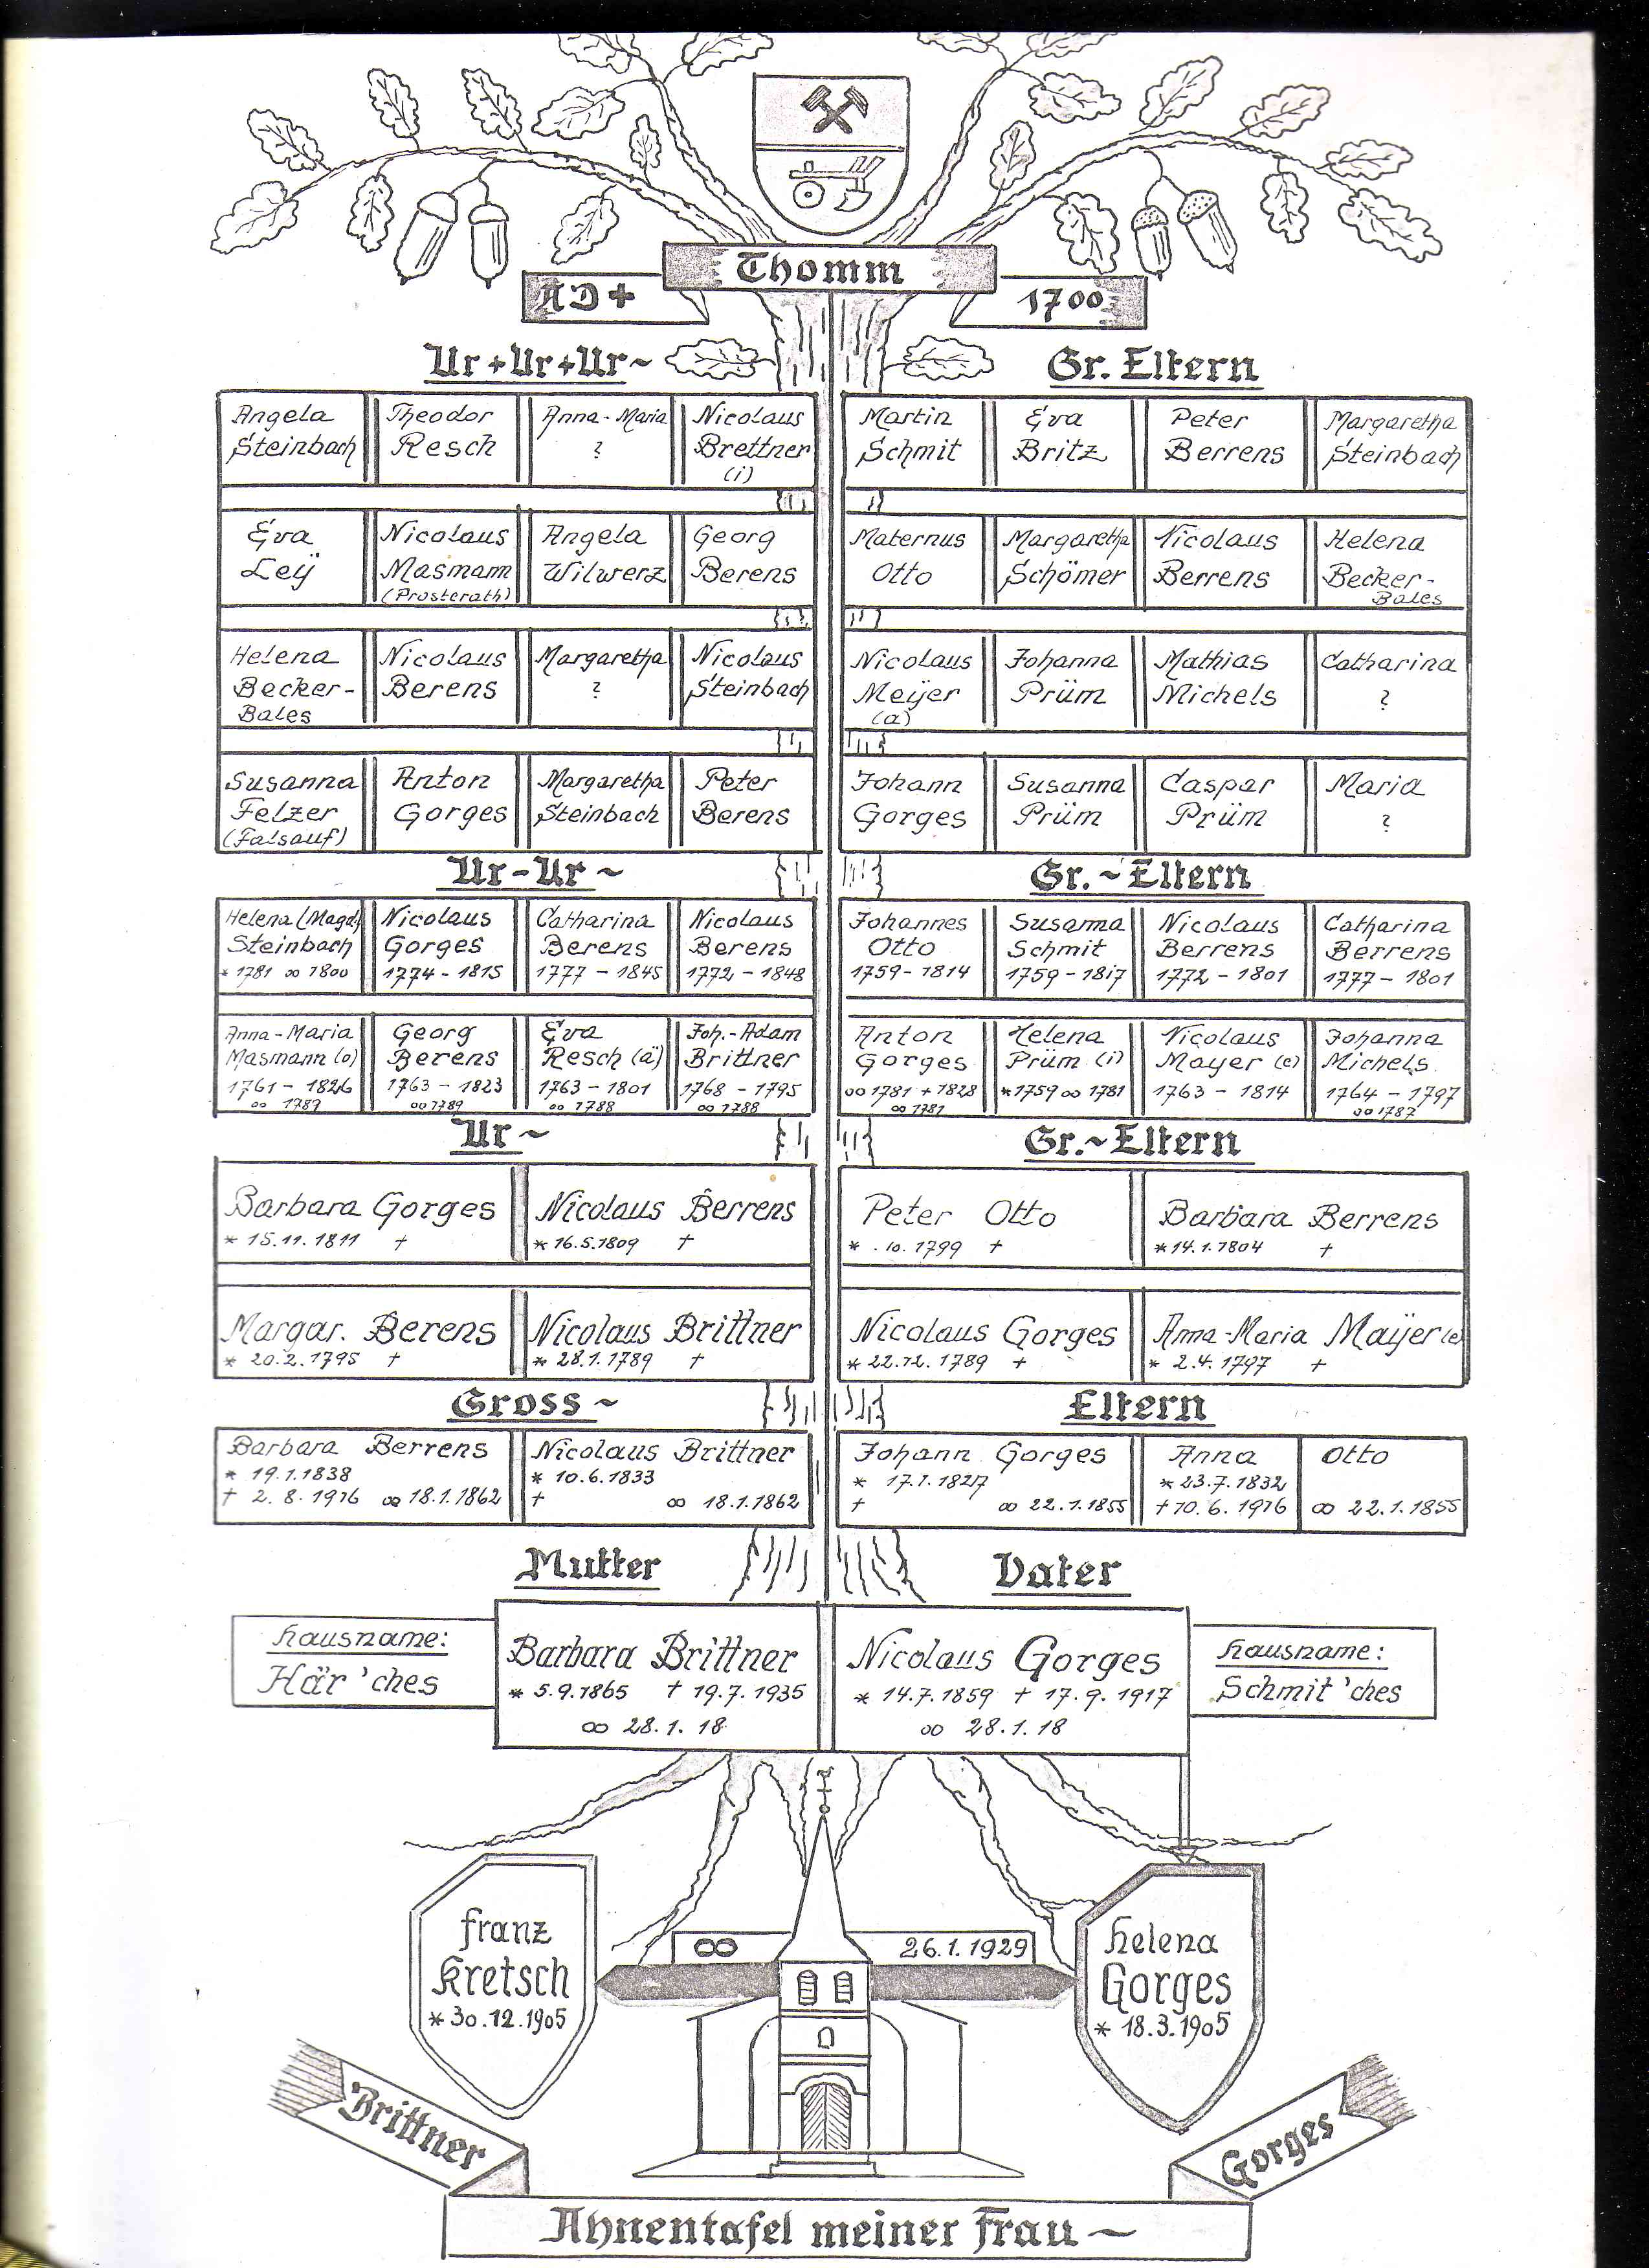 Thomm
AD + 1700
Ur + Ur + Ur ~ Gr. Eltern
Angela Theodor Anna-Maria Nicolaus Martin Eva Peter Margaretha
Steinbach Resch ? Brettner Schmit Britz Berrens Steinbach
(i)
Eva Nicolaus Angela Georg Maternus Margaretha Nicolaus Helena
Leÿ Masmann Wilwerz Berens Otto Schömer Berrens Becker-
(Prosterath) Bales
Helena Nicolaus Margaretha Nicolaus Nicolaus Johanna Mathias Catharina
Becker- Berens ? Steinbach Meÿer Prüm Michels ?
Bales (a)
Susanna Anton Margaretha Peter Johann Susanna Caspar Maria
Felzer Gorges Steinbach Berens Gorges Prüm Prüm ?
(Falsauf)
Ur - Ur ~ Gr. ~ Eltern
Helena (Magd) Nicolaus Catharina Nicolaus Johannes Susanna Nicolaus Catharina
Steinbach Gorges Berens Berens Otto Schmit Berrens Berrens
* 1781 ∞ 1800 1774 - 1815 1777 - 1845 1772 - 1848 1759 - 1814 1759 - 1817 1772 - 1801 1777 - 1801
Anna-Maria Georg Eva Joh.-Adam Anton Helena Nicolaus Johanna
Masmann (o) Berens Resch (ä) Brittner Gorges Prüm (i) Mayer (e) Michels
1761 - 1826 1763 - 1823 1763 - 1801 1768 - 1795 ∞ 1781 + 1828 * 1759 ∞ 1781 1763 - 1814 1764 - 1797
∞ 1789 ∞ 1789 ∞ 1788 ∞ 1788 ∞ 1781 ∞ 1787
Ur ~ Gr. ~ Eltern
Barbara Gorges Nicolaus Berrens Peter Otto Barbara Berrens
* 15.11.1811 † * 16.5.1809 † * .10.1799 † * 14.1.1804 †
Margar. Berens Nicolaus Brittner Nicolaus Gorges Anna-Maria Maÿer (e)
* 20.2.1795 † * 28.1.1789 † * 22.12.1789 † * 2.4.1797 †
Gross ~ Eltern
Barbara Berrens Nicolaus Brittner Johann Gorges Anna Otto
* 19.1.1838 * 10.6.1833 * 17.1.1827 * 23.7.1832
† 2.8.1916 ∞ 18.1.1862 † ∞ 18.1.1862 † ∞ 22.1.1855 † 10.6.1916 ∞ 22.1.1855
Mutter Vater
Hausname: Barbara Brittner Nicolaus Gorges Hausname:
Här'ches * 5.9.1865 † 19.7.1935 * 14.7.1859 † 17.9.1917 Schmit'ches
∞ 28.1.18 ∞ 28.1.18
Franz Helena
Kretsch ∞ 26.1.1929 Gorges
* 30.12.1905 * 18.3.1905
Brittner Gorges
Ahnentafel meiner Frau ~